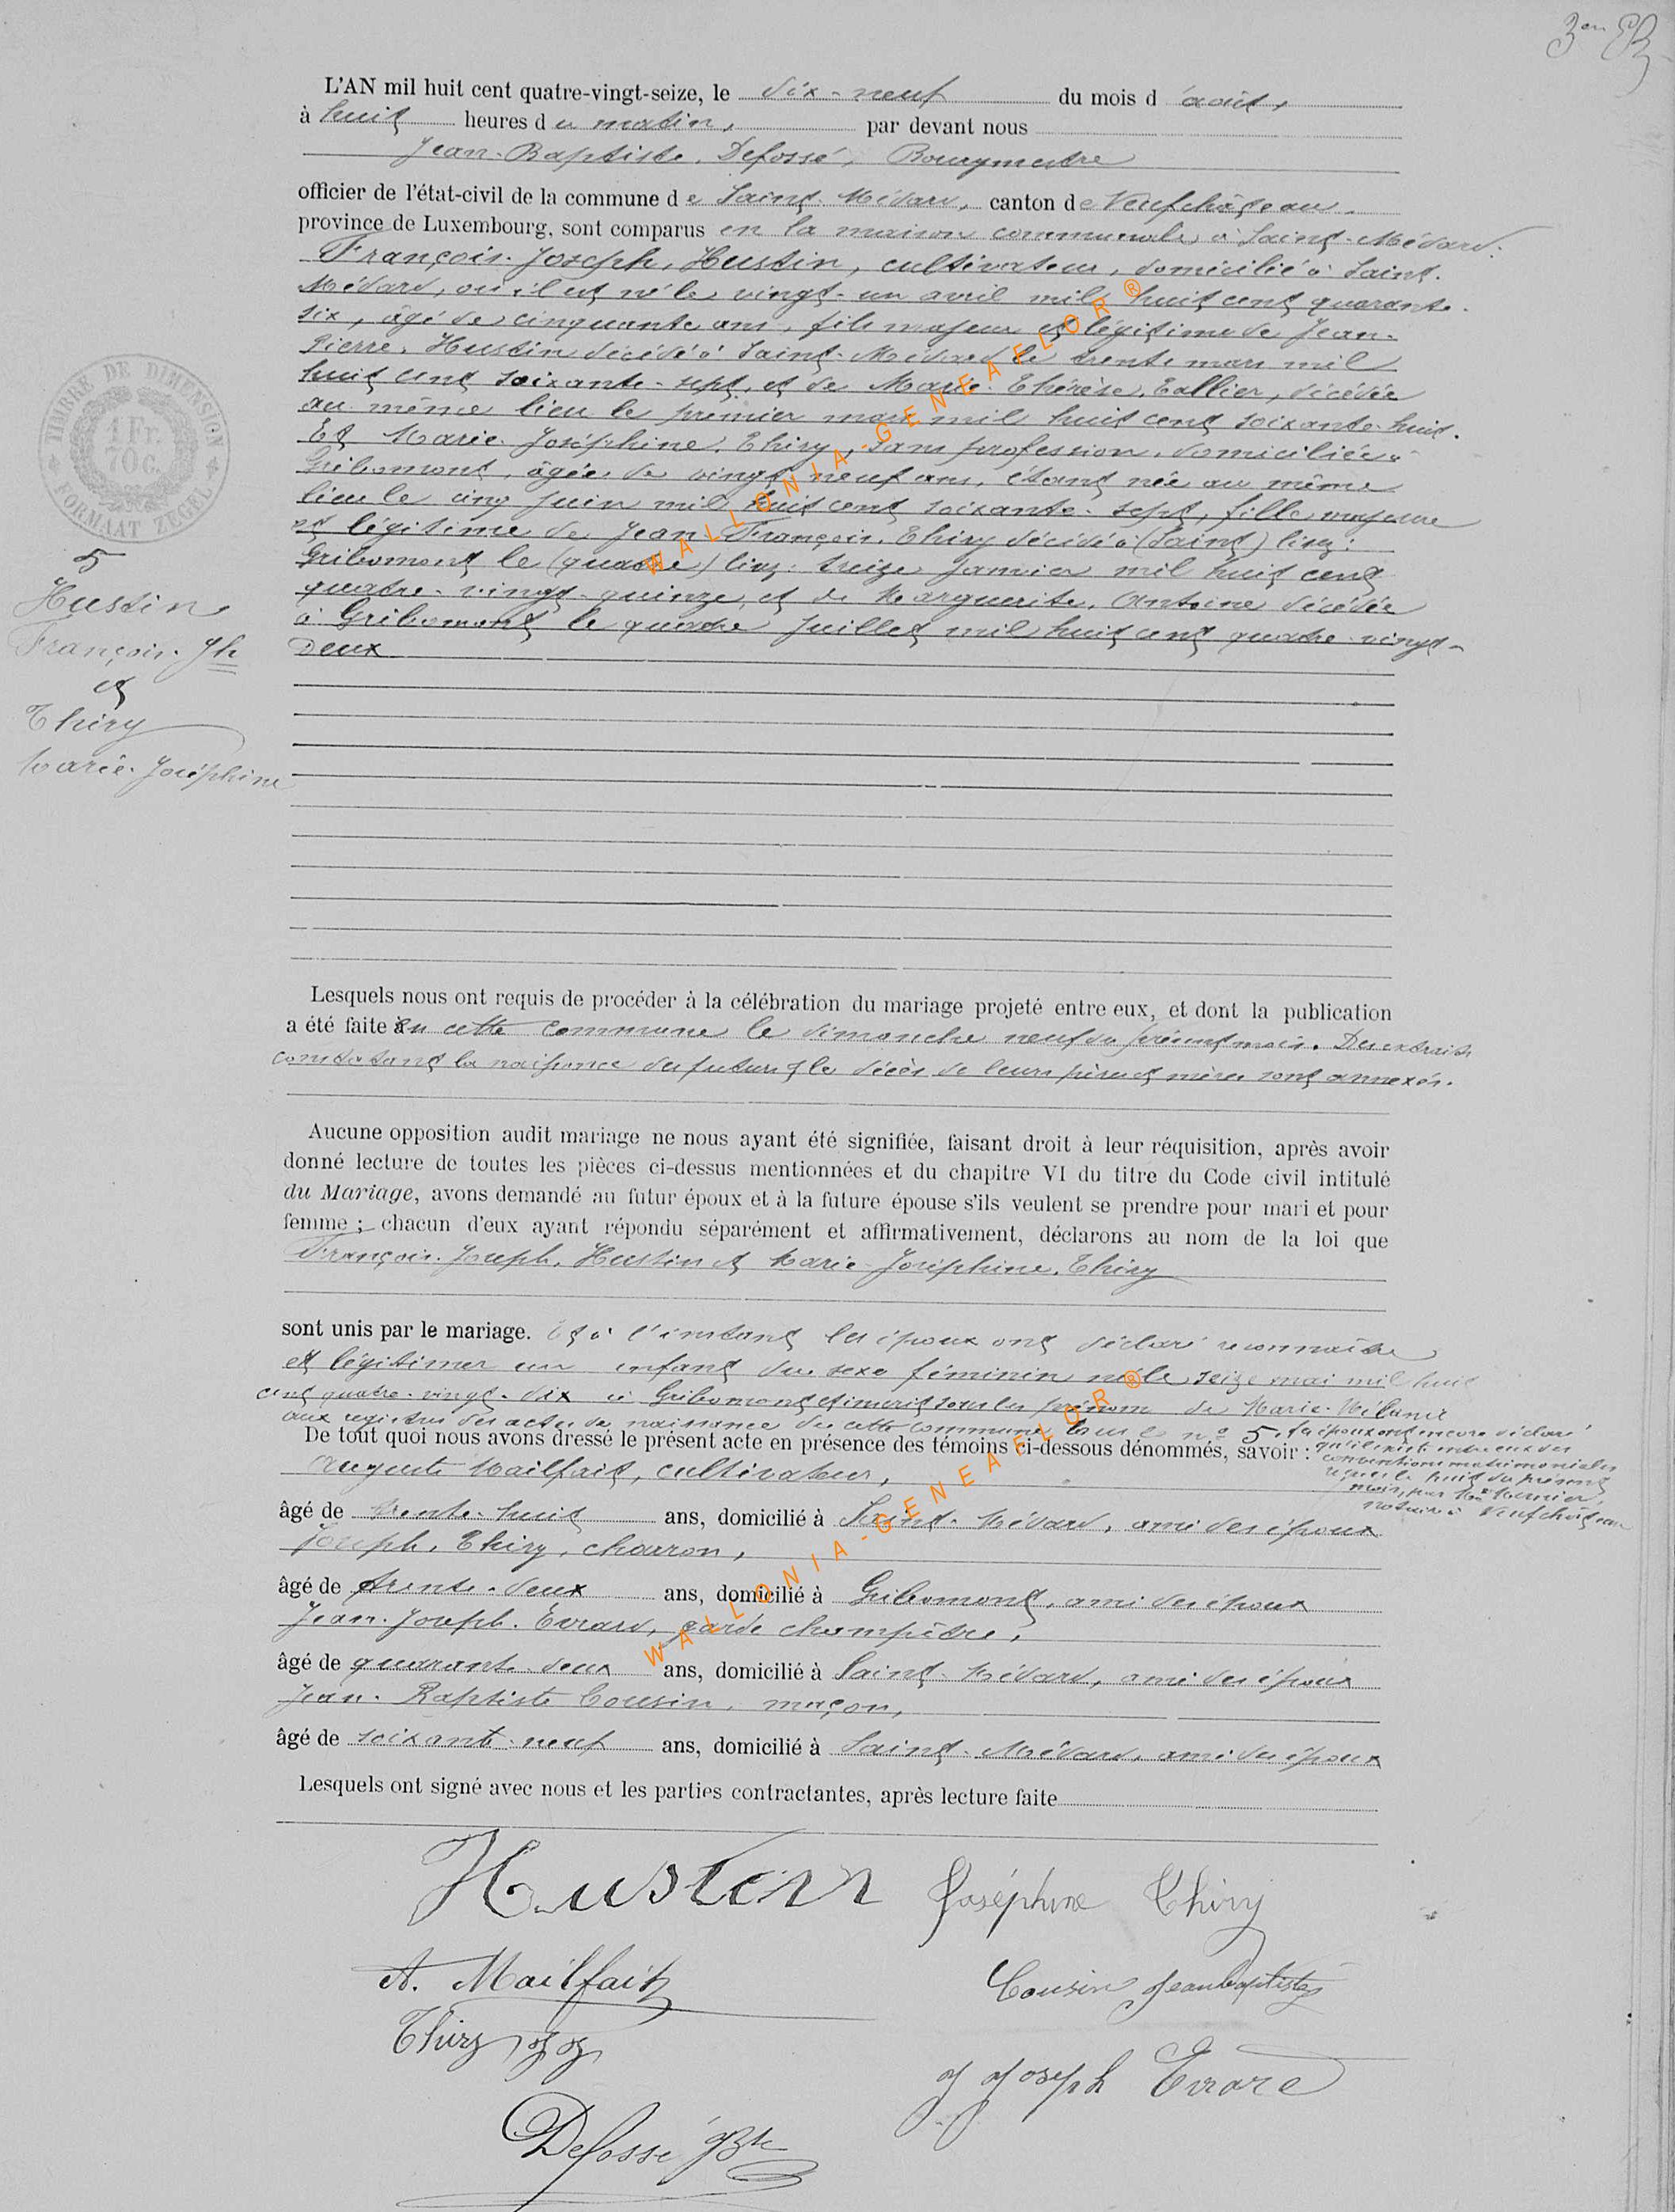 3en
L'AN mil huit cent quatre-vingt-seize, le dix-neuf du mois d'août,
à huit heures du matin, par devant nous
Jean-Baptiste, Defossé, Bourgmestre
officier de l'état-civil de la commune de Saint-Médard, canton de Neufchâteau,
province de Luxembourg, sont comparus en la maison communale, à Saint-Médard.
François-Joseph, Hustin, cultivateur, domicilié à Saint-
Médard, où il est né le vingt-un avril mil huit cent quarante-
six, âgé de cinquante ans, fils majeur et légitime de Jean-
Pierre, Hustin décédé à Saint-Médard le trente mars mil
huit cent soixante-sept, et de Marie-Thérèse, Tallier, décédée
au même lieu le premier mars mil huit cent soixante-huit.
Et Marie-Joséphine, Thiry, sans profession, domiciliée à
Gribomont, âgée de vingt neuf ans, étant née au même
lieu le cinq juin mil huit cent soixante-sept, fille majeure
et légitime de Jean-François, Thiry décédé à (Saint) lisez:
Gribomont le (quatre) lisez: treize janvier mil huit cent
quatre-vingt-quinze, et de Marguerite, Antoine décédée
à Gribomont le quatre juillet mil huit cent quatre-vingt-
deux
TIMBRE DE DIMENSION
1 Fr.
70 C.
FORMAAT ZEGEL
5
Hustin
François-Jh
et
Thiry
Marie-Joséphine
Lesquels nous ont requis de procéder à la célébration du mariage projeté entre eux, et dont la publication
a été faite en cette commune le dimanche neuf du présent mois. Des extraits
constatant la naissance des futurs et le décès de leurs pères et mères sont annexés.
Aucune opposition audit mariage ne nous ayant été signifiée, faisant droit à leur réquisition, après avoir
donné lecture de toutes les pièces ci-dessus mentionnées et du chapitre VI du titre du Code civil intitulé
du Mariage, avons demandé au futur époux et à la future épouse s'ils veulent se prendre pour mari et pour
femme ; chacun d'eux ayant répondu séparément et affirmativement, déclarons au nom de la loi que
François-Joseph, Hustin et Marie-Joséphine, Thiry
sont unis par le mariage. Et à l'instant les époux ont déclaré reconnaître
et légitimer un enfant du sexe féminin né le seize mai mil huit
cent quatre-vingt-dix à Gribomont et inscrit sous les prénoms de Marie-Mélanie
aux registres des actes de naissance de cette commune sous le n° 5. Les époux ont encore déclaré
De tout quoi nous avons dressé le présent acte en présence des témoins ci-dessous dénommés, savoir :
qu'il existe entre eux des
conventions matrimoniales
reçues le huit du présent
mois, par Me Mernier,
notaire à Neufchâteau
Auguste Mailfait, cultivateur,
âgé de trente-huit ans, domicilié à Saint-Médard, ami des époux
Joseph, Thiry, charron,
âgé de trente-deux ans, domicilié à Gribomont, ami des époux
Jean-Joseph, Evrard, garde champêtre,
âgé de quarante-deux ans, domicilié à Saint-Médard, ami des époux
Jean-Baptiste Cousin, maçon,
âgé de soixante-neuf ans, domicilié à Saint-Médard, ami des époux
Lesquels ont signé avec nous et les parties contractantes, après lecture faite
Hustin Joséphine Thiry
A. Mailfait Cousin Jean Baptiste
Thiry
J Joseph Evrard
Defossé JBte
WALLONIA-GENEAFLOR®
WALLONIA-GENEAFLOR®